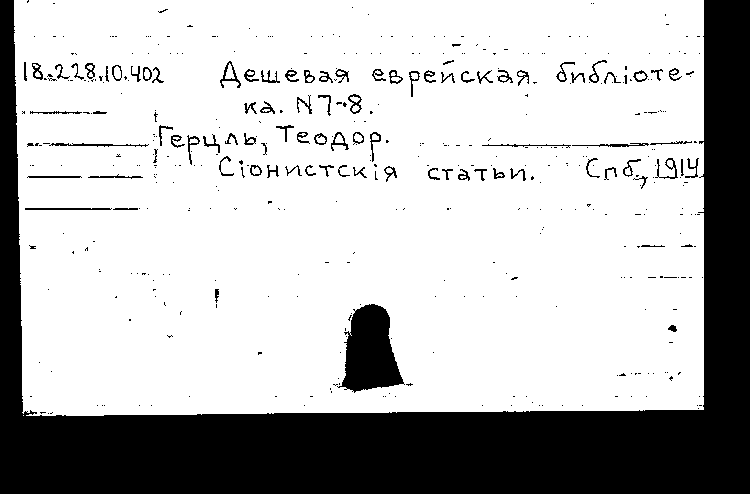 18.228.10.402 Дешевая еврейская библіоте-
ка. N 7-8.
Герцль, Теодор.
Сіонистскія статьи. Спб., 1914